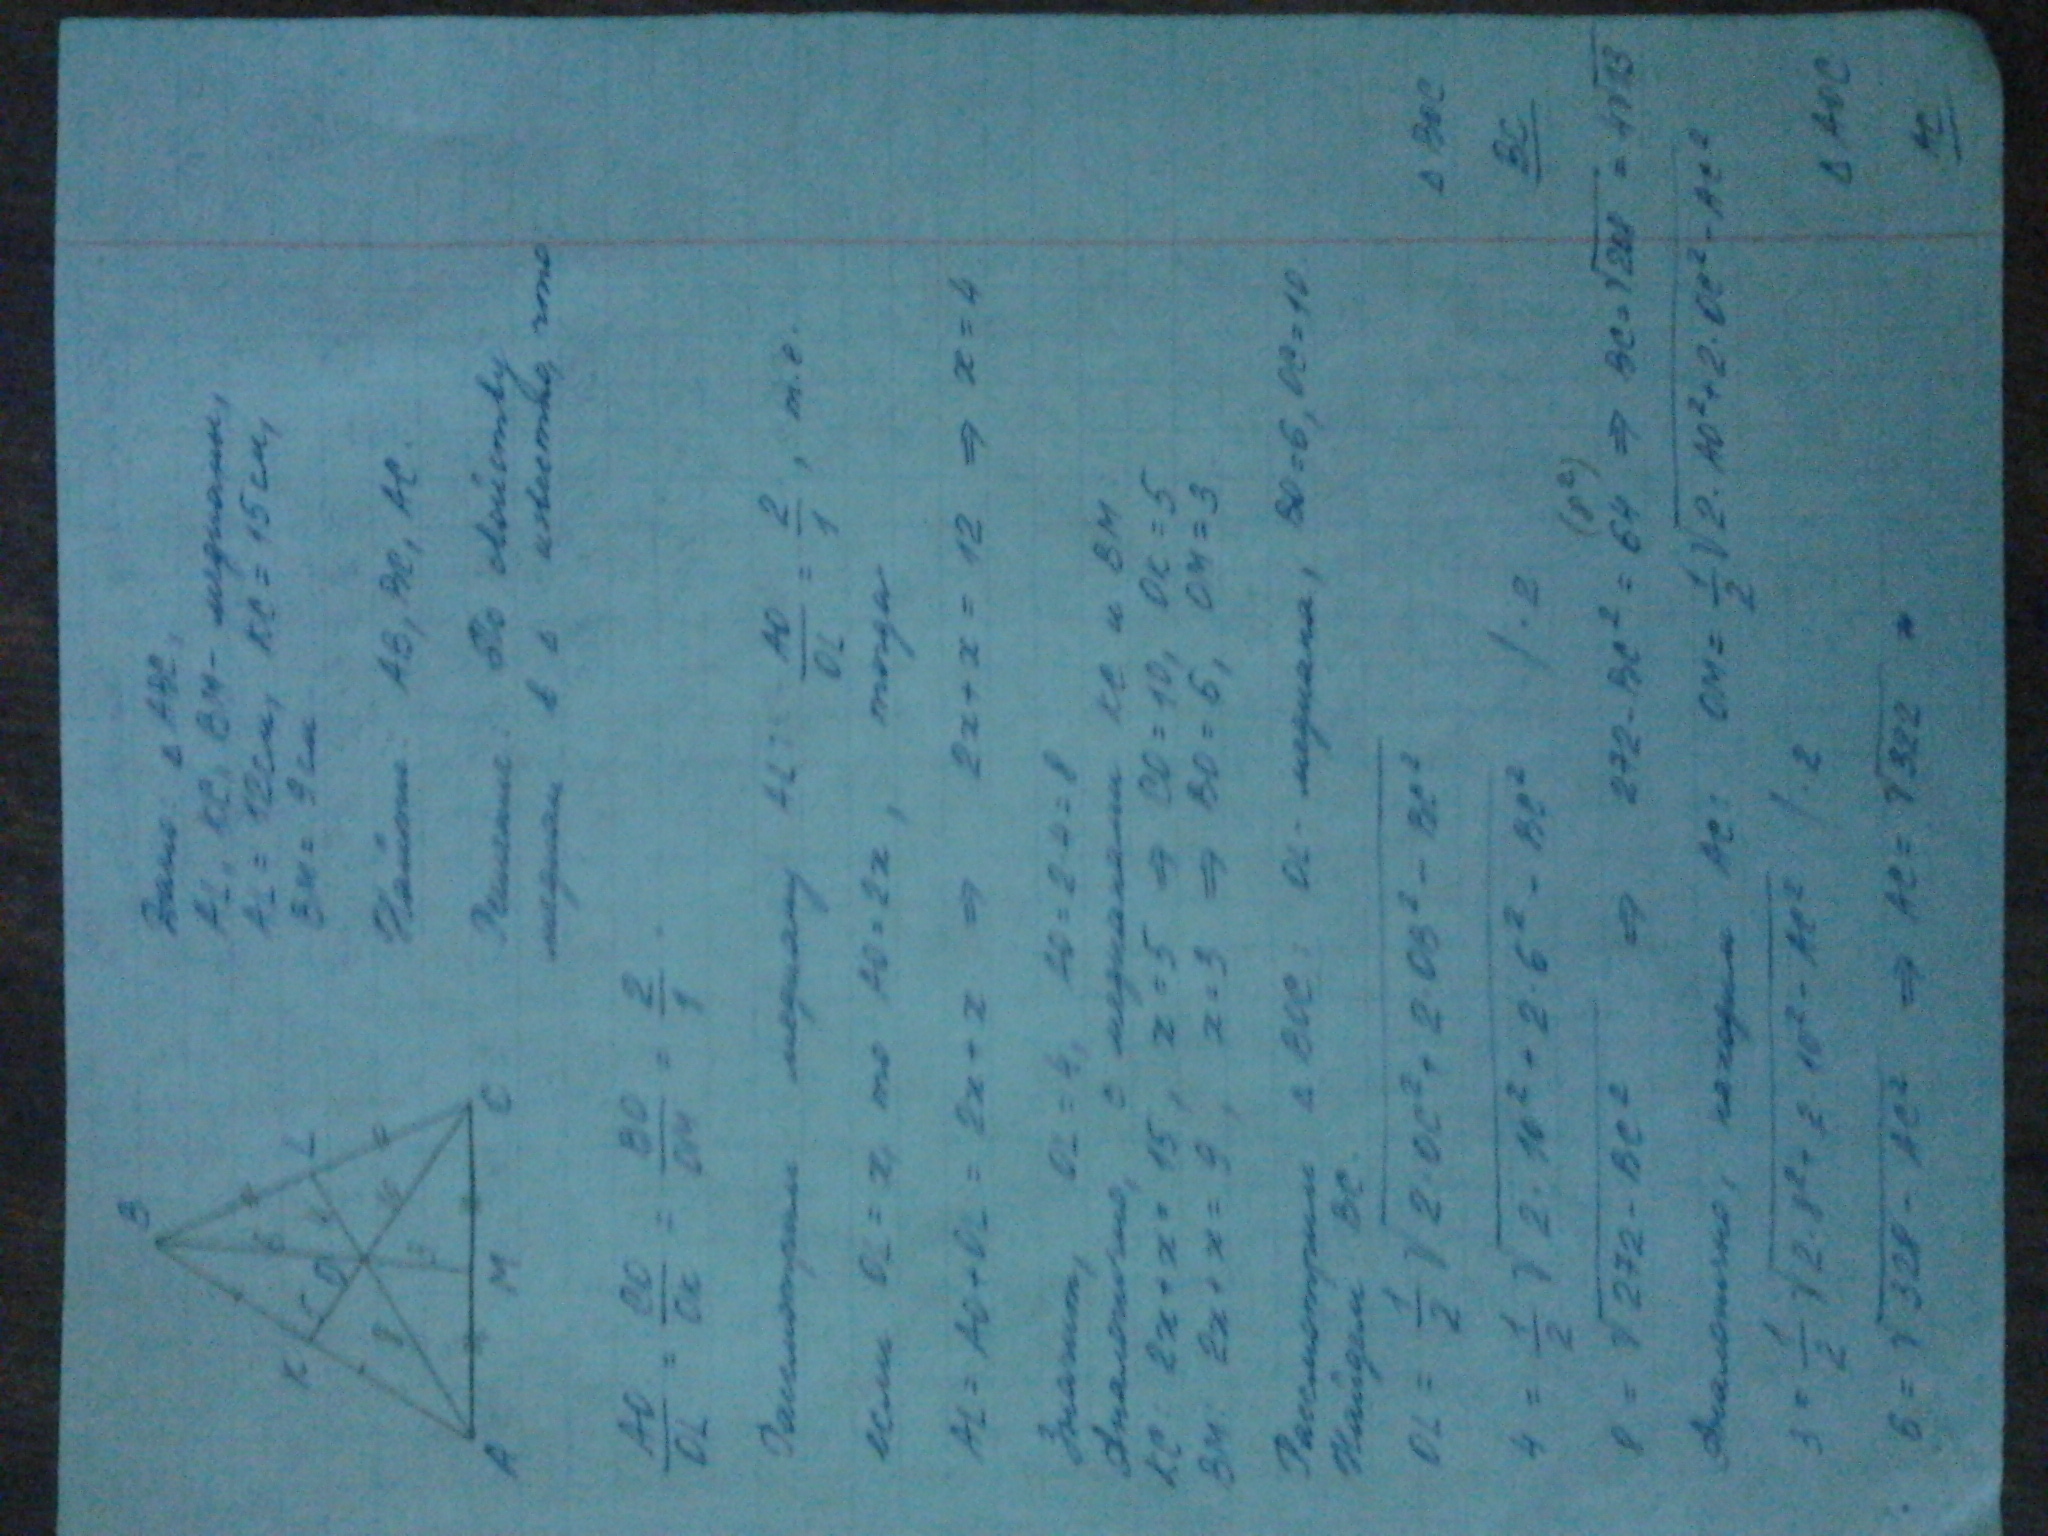 Дано: Δ ABC,
AL, KC, BM - медианы,
AL = 12 см, KC = 15 см,
BM = 9 см
Найти: AB, BC, AC.
Решение: По свойству
медиан в Δ известно, что
B
K
L
O
A
M
C
5
6
4
8
10
3
AO/OL = CO/OK = BO/OM = 2/1.
Рассмотрим медиану AL: AO/OL = 2/1, т.е.
если OL = x, то AO = 2x, тогда
AL = AO + OL = 2x + x ⇒ 2x + x = 12 ⇒ x = 4
Значит, OL = 4, AO = 2·4 = 8
Аналогично, с медианами KC и BM:
KC: 2x + x = 15, x = 5 ⇒ CO = 10, OK = 5
BM: 2x + x = 9, x = 3 ⇒ BO = 6, OM = 3
Рассмотрим Δ BOC: OL - медиана, BO = 6, OC = 10.
Найдем BC.
OL = 1/2 √(2·OC² + 2·OB² - BC²) Δ BOC
4 = 1/2 √(2·10² + 2·6² - BC²) /·2 BC
8 = √(272 - BC²) ⇒ 272 - BC² = 64 (8²) ⇒ BC = √208 = 4√13
Аналогично, находим AC: OM = 1/2 √(2·AO² + 2·OC² - AC²)
3 = 1/2 √(2·8² + 2·10² - AC²) /·2 Δ AOC
6 = √(328 - AC²) ⇒ AC = √322 AC